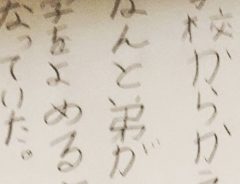 校からかえ
なんと弟が
字をよめる
なっていた。